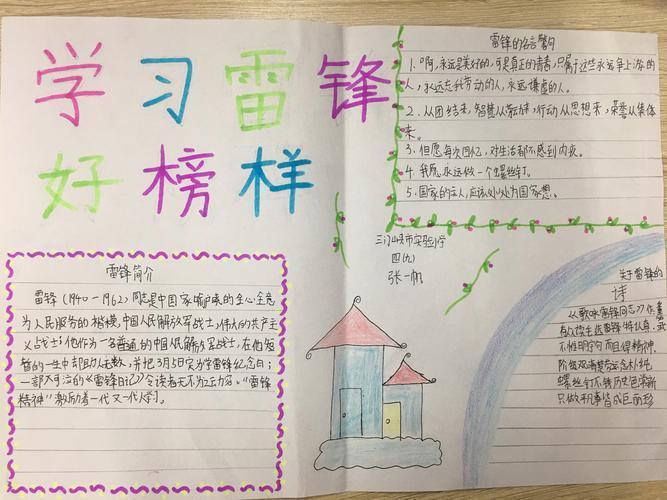 学习雷锋
好榜样
雷锋的名言警句
1.“啊，永远是美好的，可是真正的青春，只属于这些永远争上游的
人，永远忘我劳动的人，永远谦虚的人。
2.从团结来，智慧从劳动来，行动从思想来，荣誉从集体
来。
3.但愿每次回忆，对生活都不感到内疚。
4.我愿永远做一个螺丝钉。
5.国家的主人，应该处处为国家想。
三门峡市实验小学
四（九）
张一帆
雷锋简介
雷锋（1940－1962）同志是中国家喻户晓的全心全意
为人民服务的楷模，中国人民解放军战士，伟大的共产主
义战士；他作为一名普通的中国人民解放军战士，在他短
暂的一生中却助人无数，并把3月5日定为学雷锋纪念日；
一部可治的《雷锋日记》令读者无不为之动容。“雷锋
精神”激励着一代又一代人学习。
关于雷锋的
诗
从歌咏雷锋同志
雷锋
不惟明字句而且得精神
阶级
螺丝钉不锈历史包常新
只做平凡事皆成巨丽珍